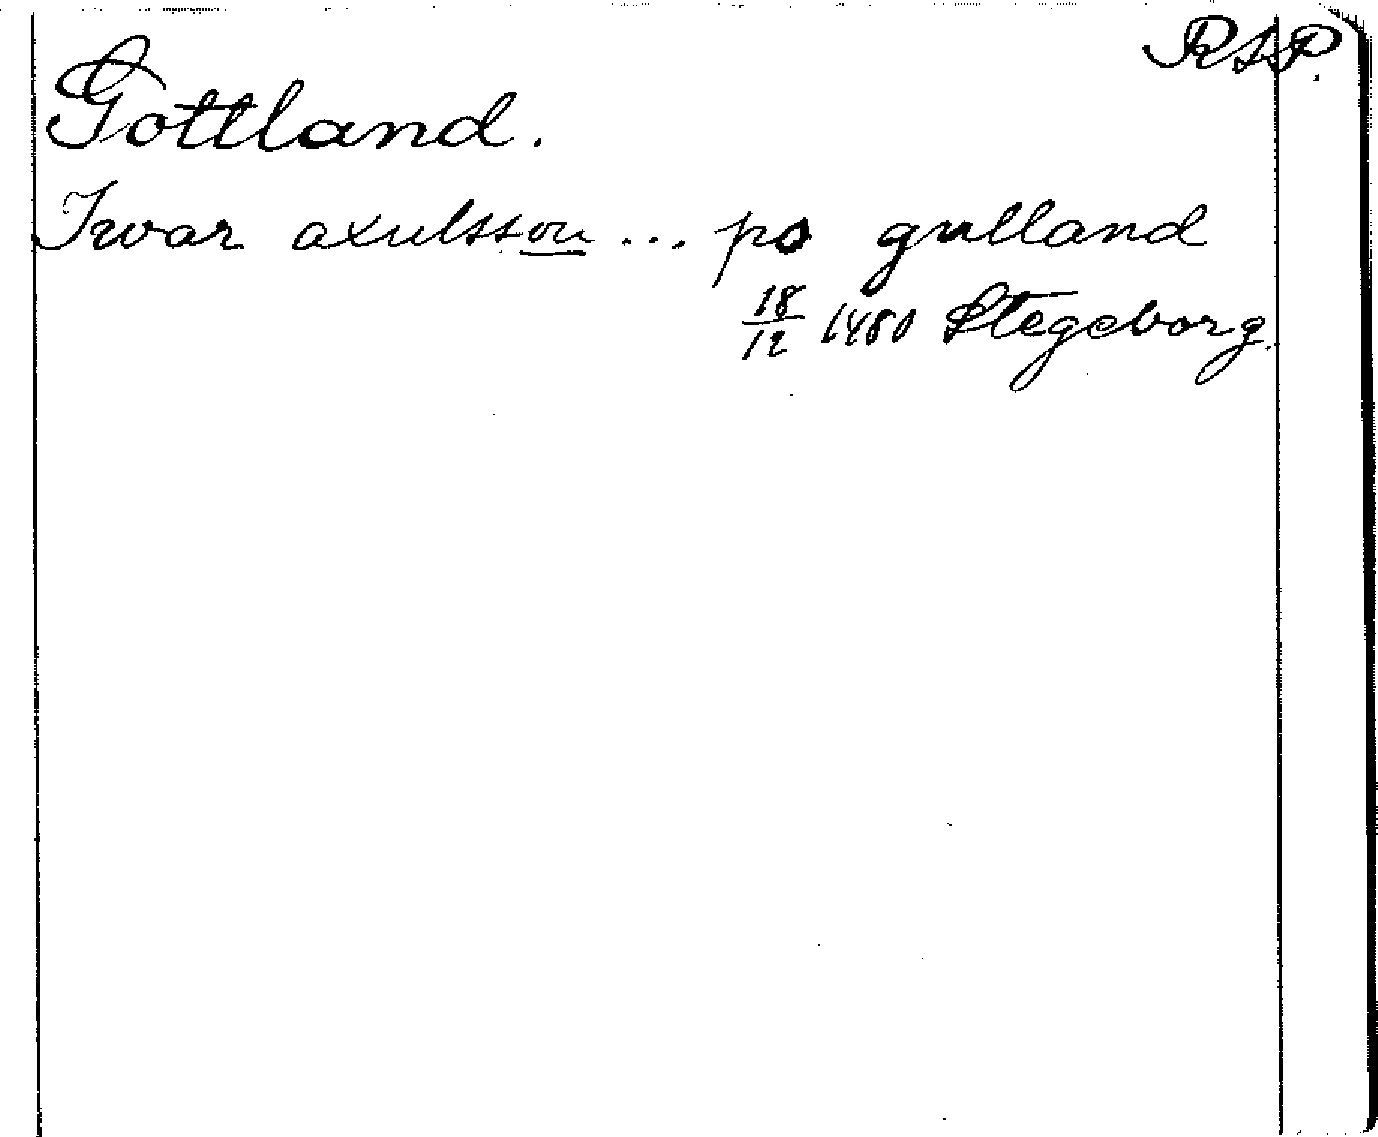 RAP.
Gottland.
Iwar axulsson ... po gulland
18/12 1480 Stegeborg.